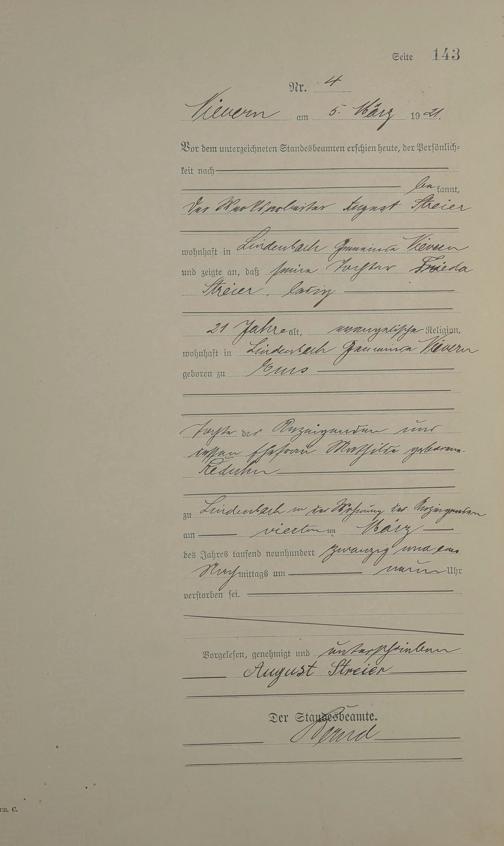 Seite 143
Nr. 4
Nievern am 5. März 1921.
Vor dem unterzeichneten Standesbeamten erschien heute, der Persönlich-
keit nach
be kannt,
der Werksarbeiter August Streier
wohnhaft in Lindenbach Gemeinde Nievern
und zeigte an, daß seine Tochter Frieda
Streier, ledig
21 Jahre alt, evangelischer Religion,
wohnhaft in Lindenbach Gemeinde Nievern
geboren zu Ems
Tochter des Anzeigenden und
dessen Ehefrau Mathilde geborene
zu Lindenbach in der Wohnung des Anzeigenden
am vierten März
des Jahres tausend neunhundert zwanzig und eins
Nachmittags um neun Uhr
verstorben sei.
Vorgelesen, genehmigt und unterschrieben
August Streier
Der Standesbeamte.
C.